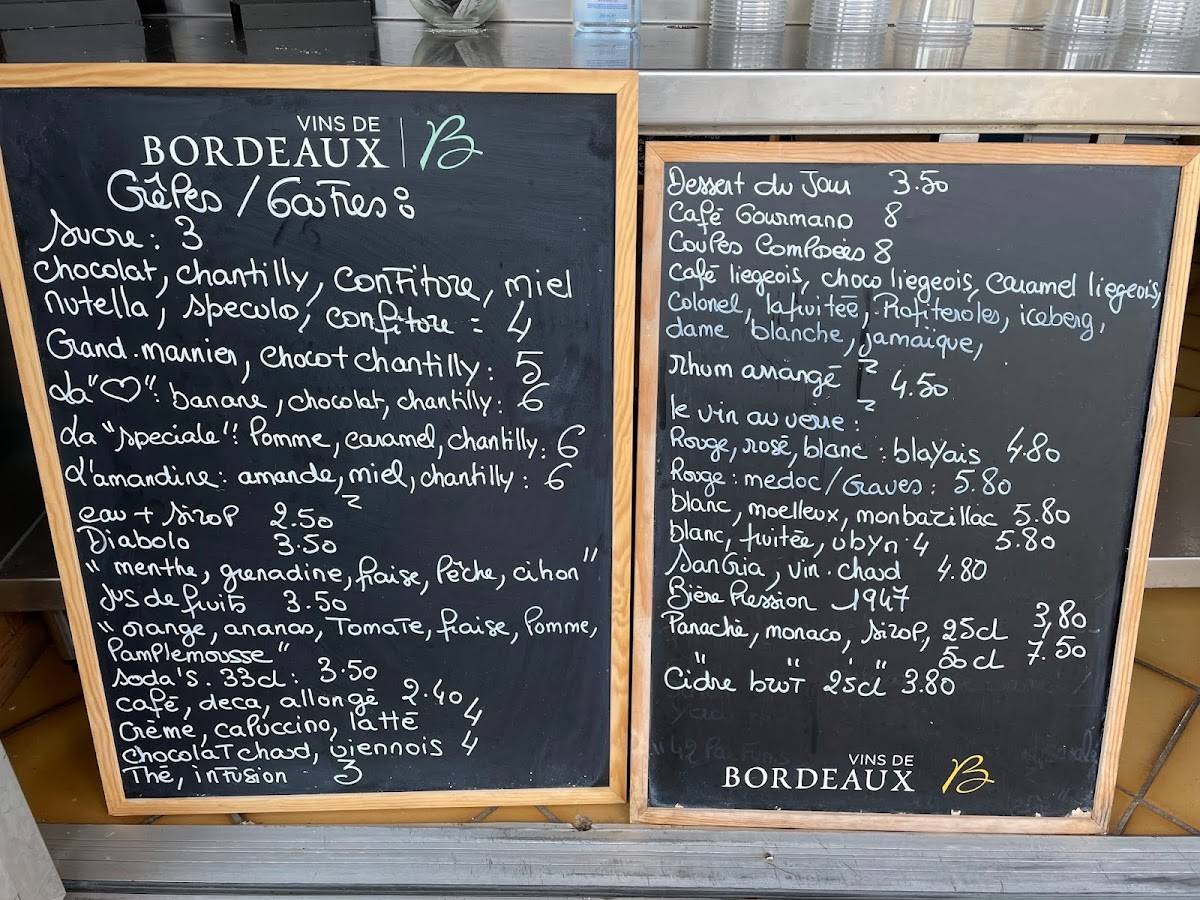 VINS DE
BORDEAUX B
Crêpes / Gaufres :
Sucre : 3
chocolat, chantilly, confiture, miel
nutella, speculo, confiture = 4
Grand.marnier, chocot chantilly : 5
La "♡" : banane, chocolat, chantilly : 6
La "speciale" : Pomme, caramel, chantilly : 6
L'amandine : amande, miel, chantilly : 6
eau + sirop 2.50
Diabolo 3.50
" menthe, grenadine, fraise, Pêche, citron "
Jus de fruits 3.50
" orange, ananas, Tomate, fraise, Pomme,
Pamplemousse "
soda's . 33cl : 3.50
café, deca, allongé 2.40
Crème, capuccino, latté 4
chocolat chaud, viennois 4
Thé, infusion 3
Dessert du Jour 3.50
Café Gourmand 8
Coupes Composées 8
Café liegeois, choco liegeois, Caramel liegeois,
Colonel, la fruitée, Profiteroles, iceberg,
dame blanche, jamaique,
Rhum arrangé 4.50
le vin au verre :
Rouge, rosé, blanc : blayais 4.80
Rouge : medoc / Graves : 5.80
blanc, moelleux, monbazillac 5.80
blanc, fruitée, uby n°4 5.80
SanGria, vin.chaud 4.80
Bière Pression 1947
Panaché, monaco, sirop, 25cl 3,80
" " " 50cl 7.50
Cidre brut 25cl 3.80
VINS DE
BORDEAUX B